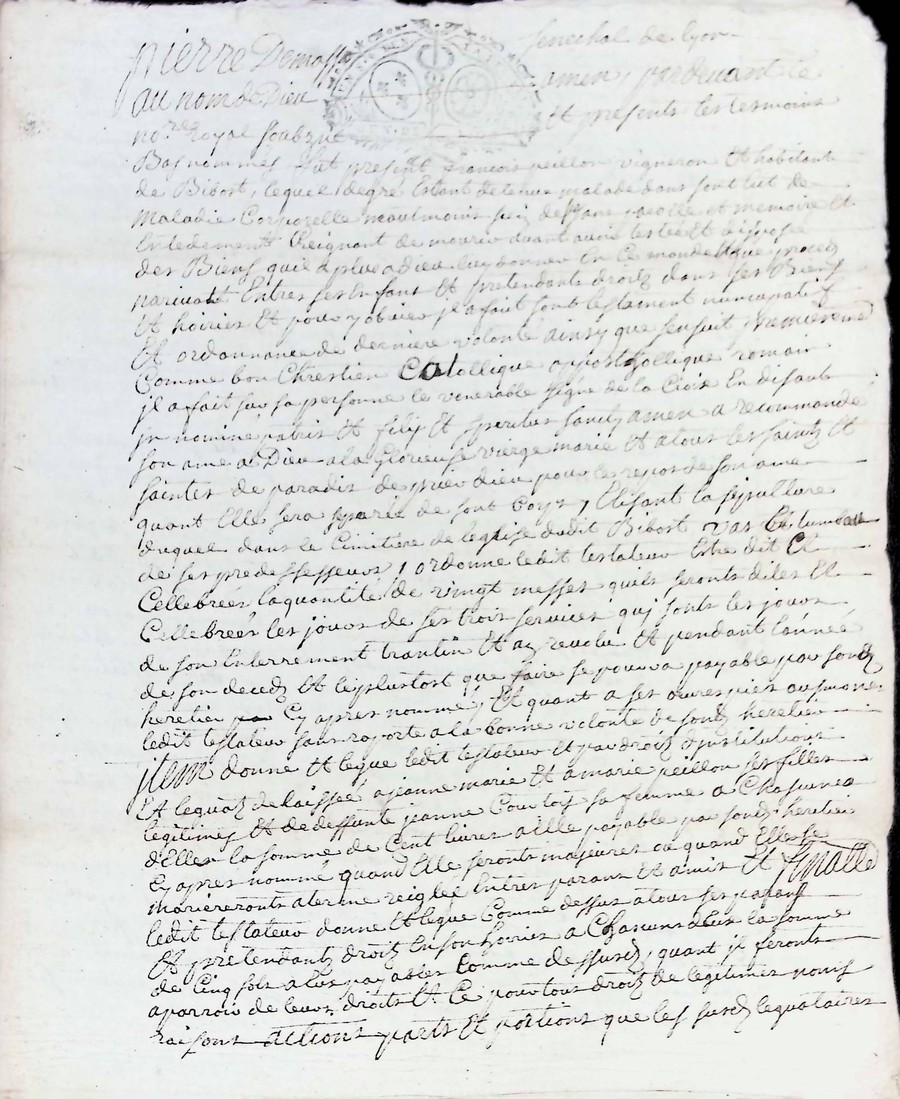 pierre Demasso senechal de lyon
au nom de Dieu amen, pardevant le
no.re royal soubzne Et presents les tesmoins
Bas nommés fut present francois peillon vigneron Et habitant
de Bibost, lequel degré Estant detenu malade dans sont lict de
Maladie Corporelle neaulmoins sein de sans parolle et memoire Et
Entedement Creignant de mourir avant avoir testé Et disposé
des Biens quil a plut a Dieu luy donner En Ce monde Et que proces
narivat Entre ses Enfant Et pretendants droitz dans ses Biens
Et hoiries Et pour y obvier jl a fait sont testament nuncupatif
Et ordonnance de derniere volonté ainsy que sensuit premierement
Comme bon Chrestien Catollique appostollique romain
jl a fait sur sa personne le venerable signe de la Croix En disant
jn nomine patris Et filij Et spiritus santy amen a recommandé
son ame a Dieu a la glorieuse vierge marie Et a tous les saintz Et
saintes de paradis de prier dieu pour le repos de son ame
quant Elle sera separée de sont Corps, Elisant la sepulture
duquel dans le Cimitiere de leglise dudit Bibost vas Et tumbeau
de ses predessesseurs, ordonne ledit testateur Estre dit Et
Cellebrées la quantité de vingt messes quils seronts dites Et
Cellebrées les jours de ses trois services qui sonts les jours
de son Enterrement trantin Et an revolu Et pendant lannée
de son decedz Et le plustost que faire se pourra payable par sondz
heretier Cy apres nommé, Et quant a ses œuvres pies ausmones
ledit testateur sans raporte a la bonne volonté de sondz heretier
jtem donne Et legue ledit testateur Et par droitz djnstitutions
Et leguatz delaissée a jeanne marie Et a marie peillon ses filles
legitimes Et de deffunte jeanne Courtois sa femme a Chascunes
d'Elles la somme de Cent livres Elle payable par sondz heretier
Cy apres nommé quand Elle seronts majeures ou quand Elle se
marieronts a terme reiglée Entres parans Et amis Et finalle
ledit testateur donne Et legue Comme dessus a tous ses parans
Et pretendantz droitz En son hoiries a Chascuns deux la somme
de Cinq sols a Eux payables Comme dessusdz, quant jl feronts
aparroir de leurs droits Et Ce pour tous droitz de legitimes noms
raisons actions parts Et portions que les susdz leguataires